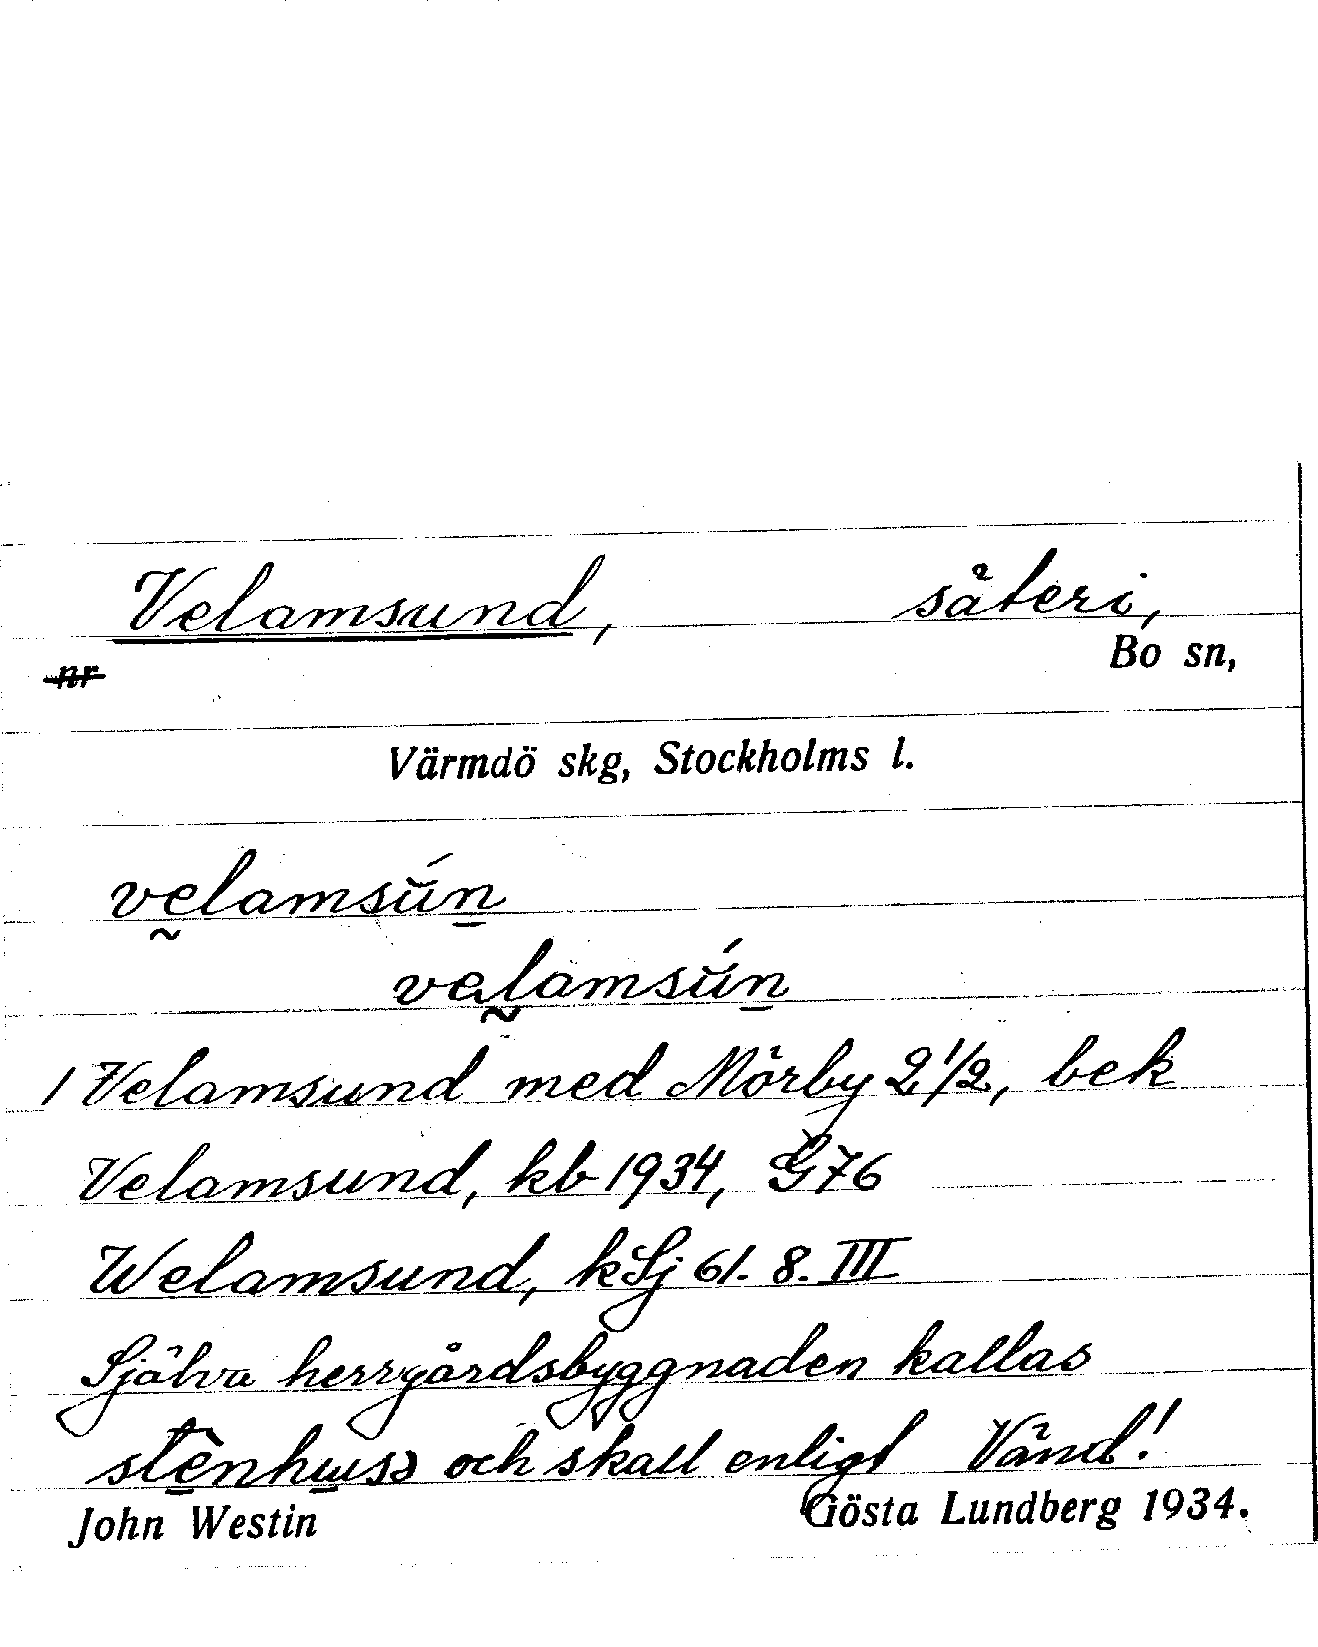 Velamsund, säteri,
Bo sn,
nr
Värmdö skg, Stockholms l.
vḛlamsŭ́n̲
vel̰amsŭ́n̲
1 Velamsund med Mörby 2 1/2, bek
Velamsund, kb 1934, G76
Welamsund, kSj 61. 8. III
Själva herrgårdsbyggnaden kallas
stè̲nhu̲sə och skall enligt Vänd!
John Westin Gösta Lundberg 1934.